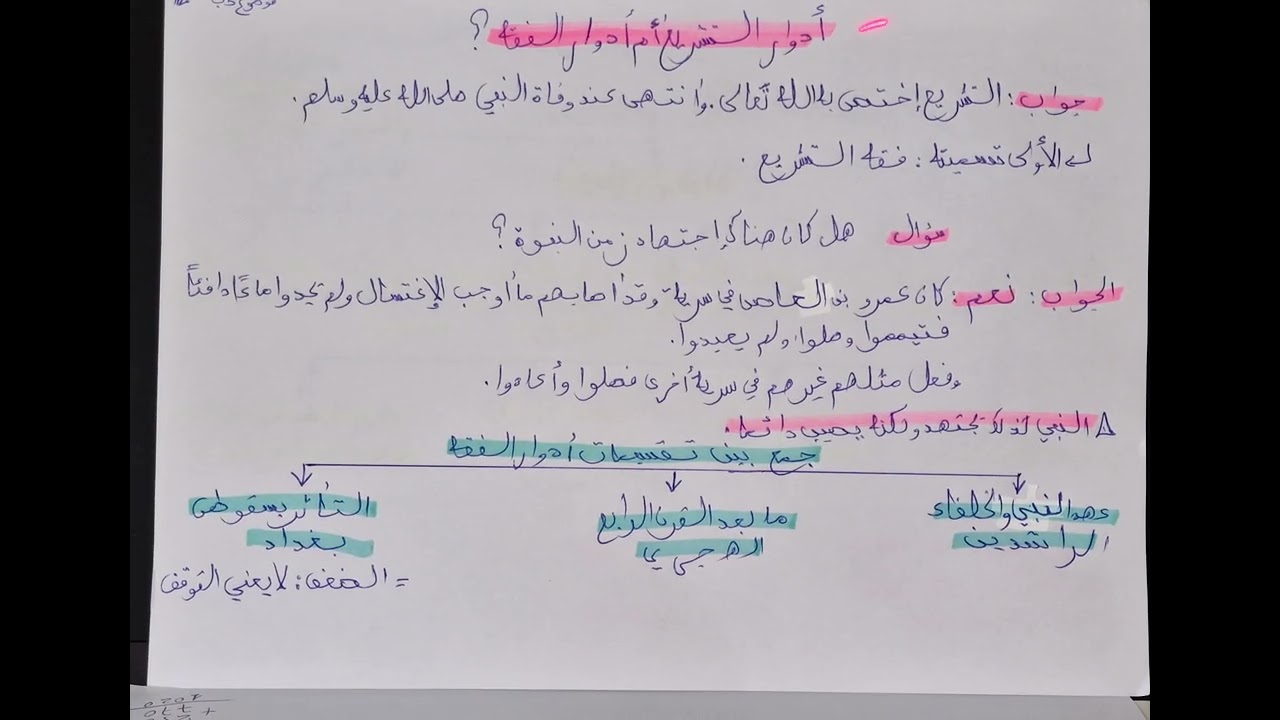 أدوار التشريع أم أدوار الفقه ؟
جواب : التشريع إختص به الله تعالى . وانتهى عند وفاة النبي صلى الله عليه وسلم .
الأولى تسميته : فقه التشريع .
سؤال هل كان هناك إجتهاد زمن النبوة ؟
الجواب : نعم : كان عمرو بن العاص في سرية وقد أصابهم ما أوجب الإغتسال ولم يجدوا ماءً دافئاً
فتيمموا وصلوا ولم يعيدوا .
وفعل مثلهم غيرهم في سرية أخرى فصلوا وأعادوا .
النبي كذلك يجتهد ولكنه يصيب دائما .
جمع بين تقسيمات أدوار الفقه
عهد النبي والخلفاء الراشدين
ما بعد القرن الرابع الهجري
التأثر بسقوط بغداد
= الضعف : لا يعني التوقف
1020
+ 770